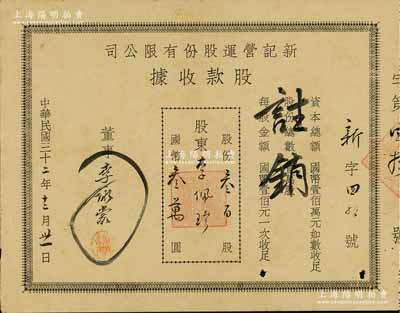 上海陽明拍賣
新記營運股份有限公司
股款收據
新字四
號
資本總額 國幣壹佰萬元如數收足
股份總數
每股金額 國幣壹佰元一次收足
註銷
股份叁百股
股東李佩珍
國幣叁萬圓
董事
中華民國二十二年十二月卅一日
字第
號
上海陽明拍賣
上海陽明拍賣